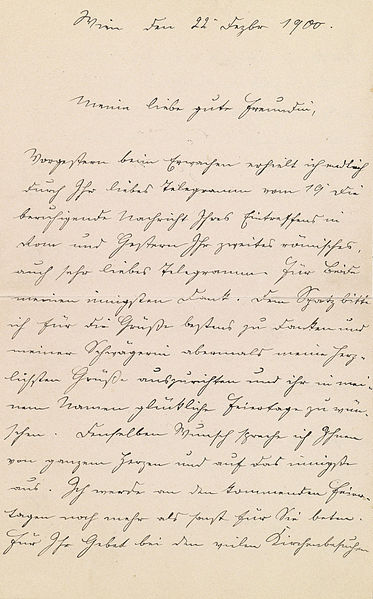 Wien den 22 Dezbr 1900.
Meine liebe gute Freundin,
Vorgestern beim Erwachen erhielt ich endlich
durch Ihr liebes Telegramm vom 19 die
beruhigende Nachricht Ihres Eintreffens in
Rom und Gestern Ihr zweites römisches,
auch sehr liebes Telegramm. Für Beide
meinen innigsten Dank. Dem Spatz bitte
ich für die Grüße bestens zu danken und
meiner Schwägerin abermals meine herz-
lichsten Grüße auszurichten und ihr in mei-
nem Namen glückliche Feiertage zu wün-
schen. Denselben Wunsch spreche ich Ihnen
von ganzem Herzen und auf das innigste
aus. Ich werde an den kommenden Feier-
tagen noch mehr als sonst für Sie beten.
Für Ihr Gebet bei den vielen Kirchenbesuchen